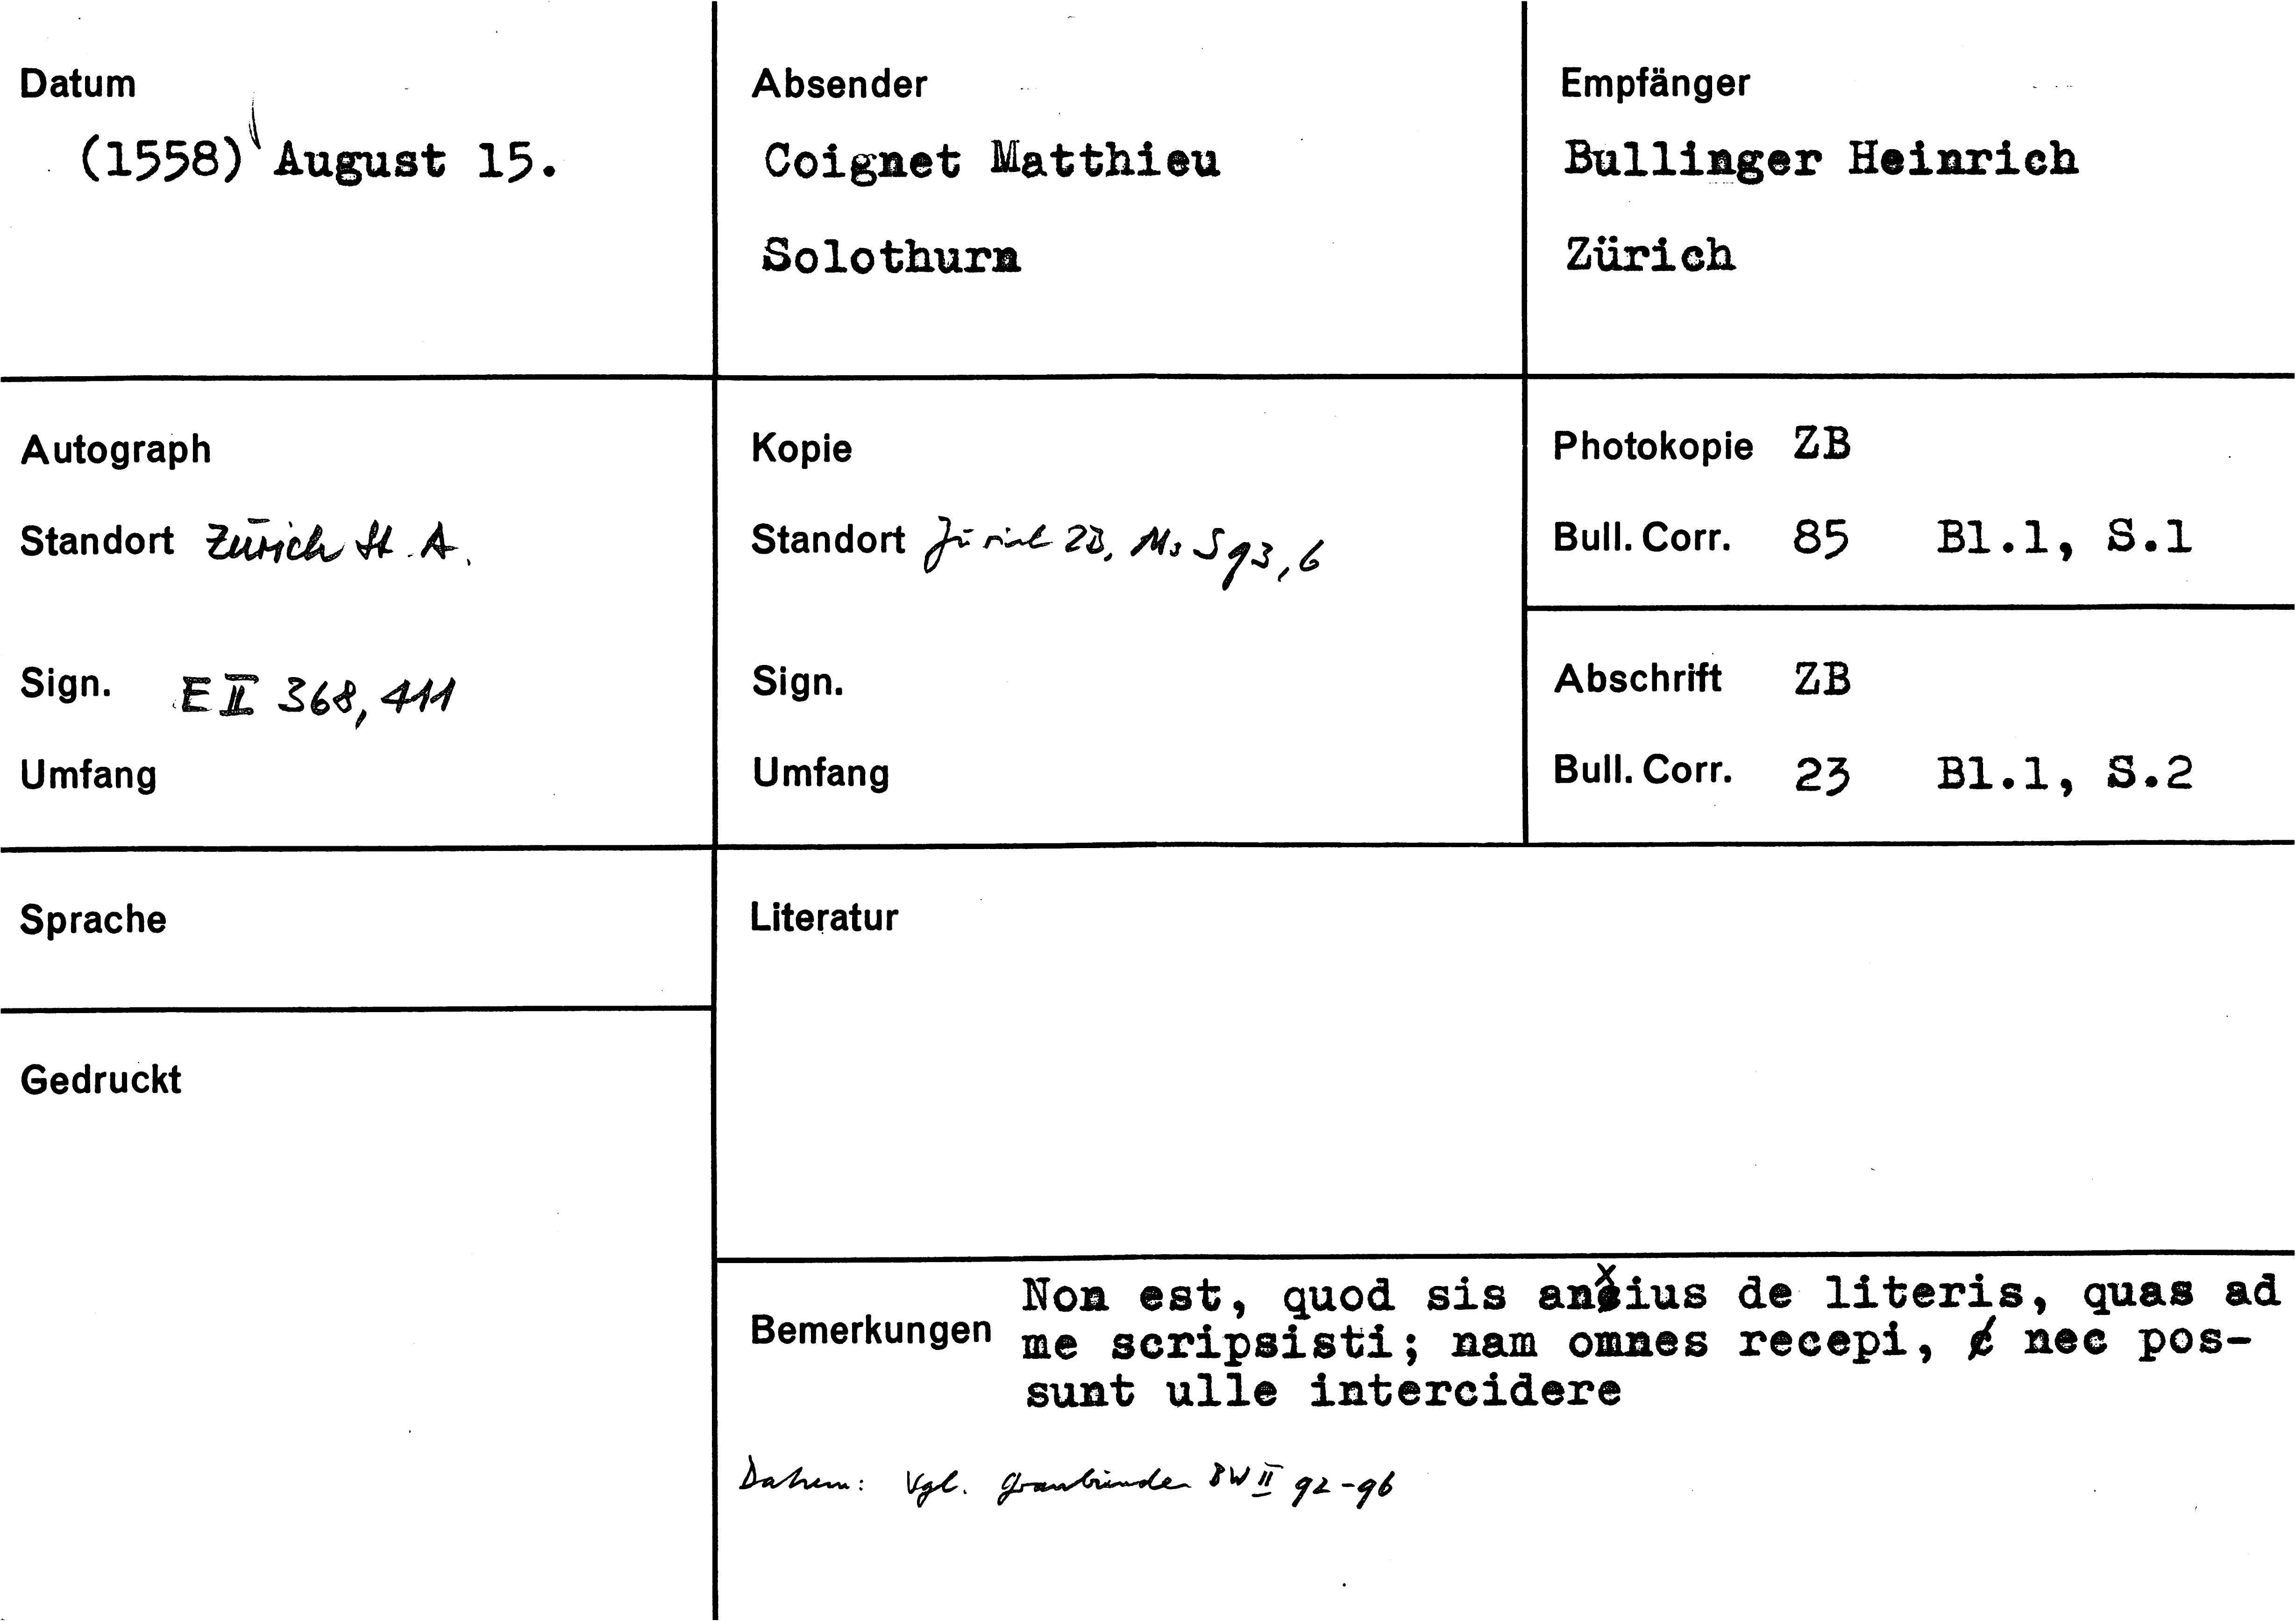 Datum
(1558) August 15.
Absender
Coignet Matthieu
Solothurn
Empfänger
Bullinger Heinrich
Zürich
Autograph
Standort Zürich St. A.
Sign. E II 368, 411
Umfang
Kopie
Standort Zürich ZB, Ms S 93, 6
Sign.
Umfang
Photokopie ZB
Bull. Corr. 85 Bl.1, S.1
Abschrift ZB
Bull. Corr. 23 Bl.1, S.2
Sprache
Literatur
Gedruckt
Bemerkungen
Non est, quod sis anxius de literis, quas ad
me scripsisti; nam omnes recepi, nec pos-
sunt ulle intercidere
Datum: Vgl. Graubünden BW II 92-96